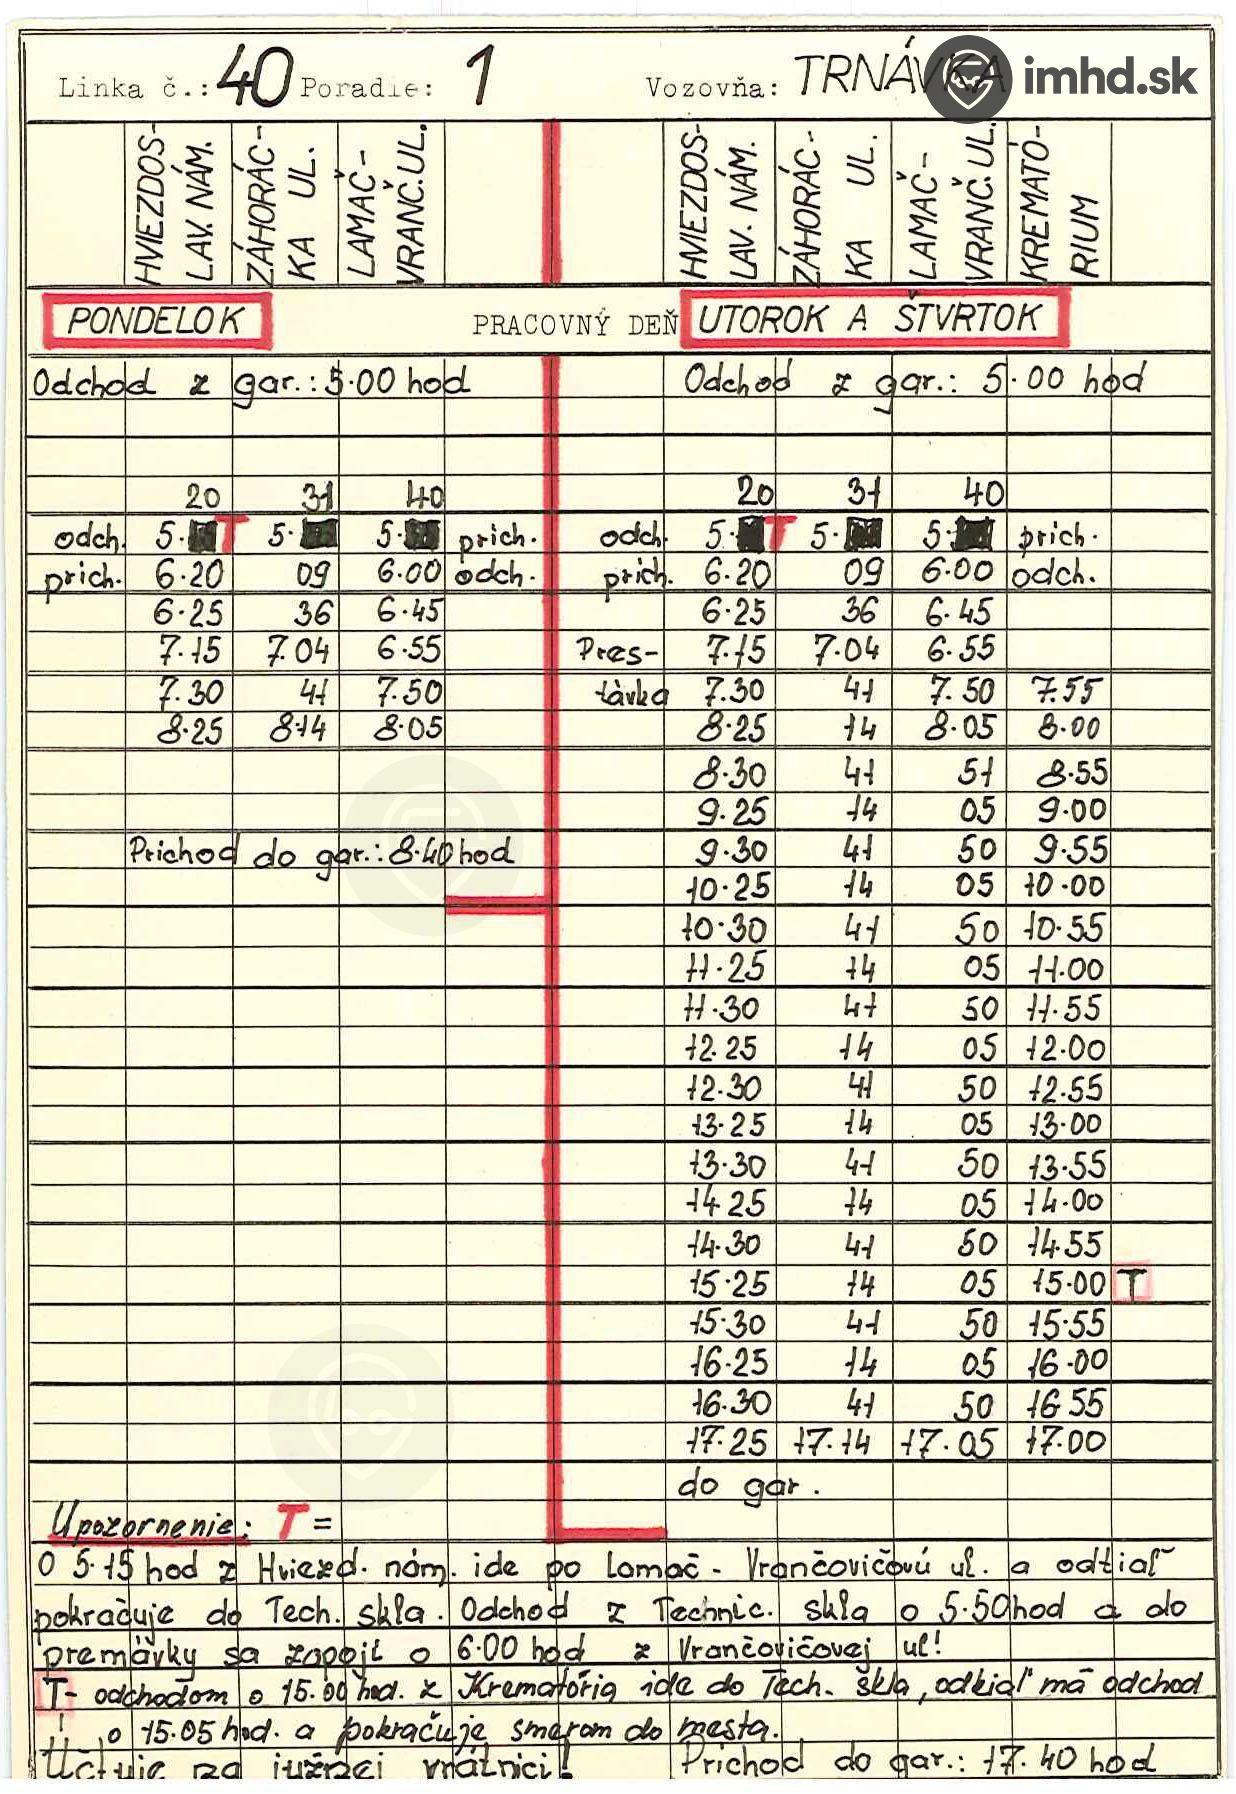 Linka č.: 40 Poradie: 1 Vozovňa: TRNÁVKA
imhd.sk
HVIEZDOSLAV. NÁM. ZÁHORÁCKA UL. LAMAČ-VRANČ.UL. HVIEZDOSLAV. NÁM. ZÁHORÁCKA UL. LAMAČ-VRANČ.UL. KREMATÓRIUM
PONDELOK PRACOVNÝ DEŇ UTOROK A ŠTVRTOK
Odchod z gar.: 5.00 hod Odchod z gar.: 5.00 hod
20 31 40 20 31 40
odch. 5. T 5. 5. prich. odch. 5. T 5. 5. prich.
prich. 6.20 09 6.00 odch. prich. 6.20 09 6.00 odch.
6.25 36 6.45 6.25 36 6.45
7.15 7.04 6.55 Pres- 7.15 7.04 6.55
7.30 41 7.50 távka 7.30 41 7.50 7.55
8.25 8.14 8.05 8.25 14 8.05 8.00
8.30 41 51 8.55
9.25 14 05 9.00
Príchod do gar.: 8.40 hod 9.30 41 50 9.55
10.25 14 05 10.00
10.30 41 50 10.55
11.25 14 05 11.00
11.30 41 50 11.55
12.25 14 05 12.00
12.30 41 50 12.55
13.25 14 05 13.00
13.30 41 50 13.55
14.25 14 05 14.00
14.30 41 50 14.55
15.25 14 05 15.00 T
15.30 41 50 15.55
16.25 14 05 16.00
16.30 41 50 16.55
17.25 17.14 17.05 17.00
do gar.
Upozornenie: T =
O 5.15 hod z Hviezd. nám. ide po Lamač - Vrančovičovú ul. a odtiaľ
pokračuje do Tech. skla. Odchod z Technic. skla o 5.50 hod a do
premávky sa zapojí o 6.00 hod z Vrančovičovej ul!
T- odchodom o 15.00 hod. z Krematória ide do Tech. skla, odkiaľ má odchod
o 15.05 hod. a pokračuje smerom do mesta.
Účtuje na južnej vrátnici! Príchod do gar.: 17.40 hod